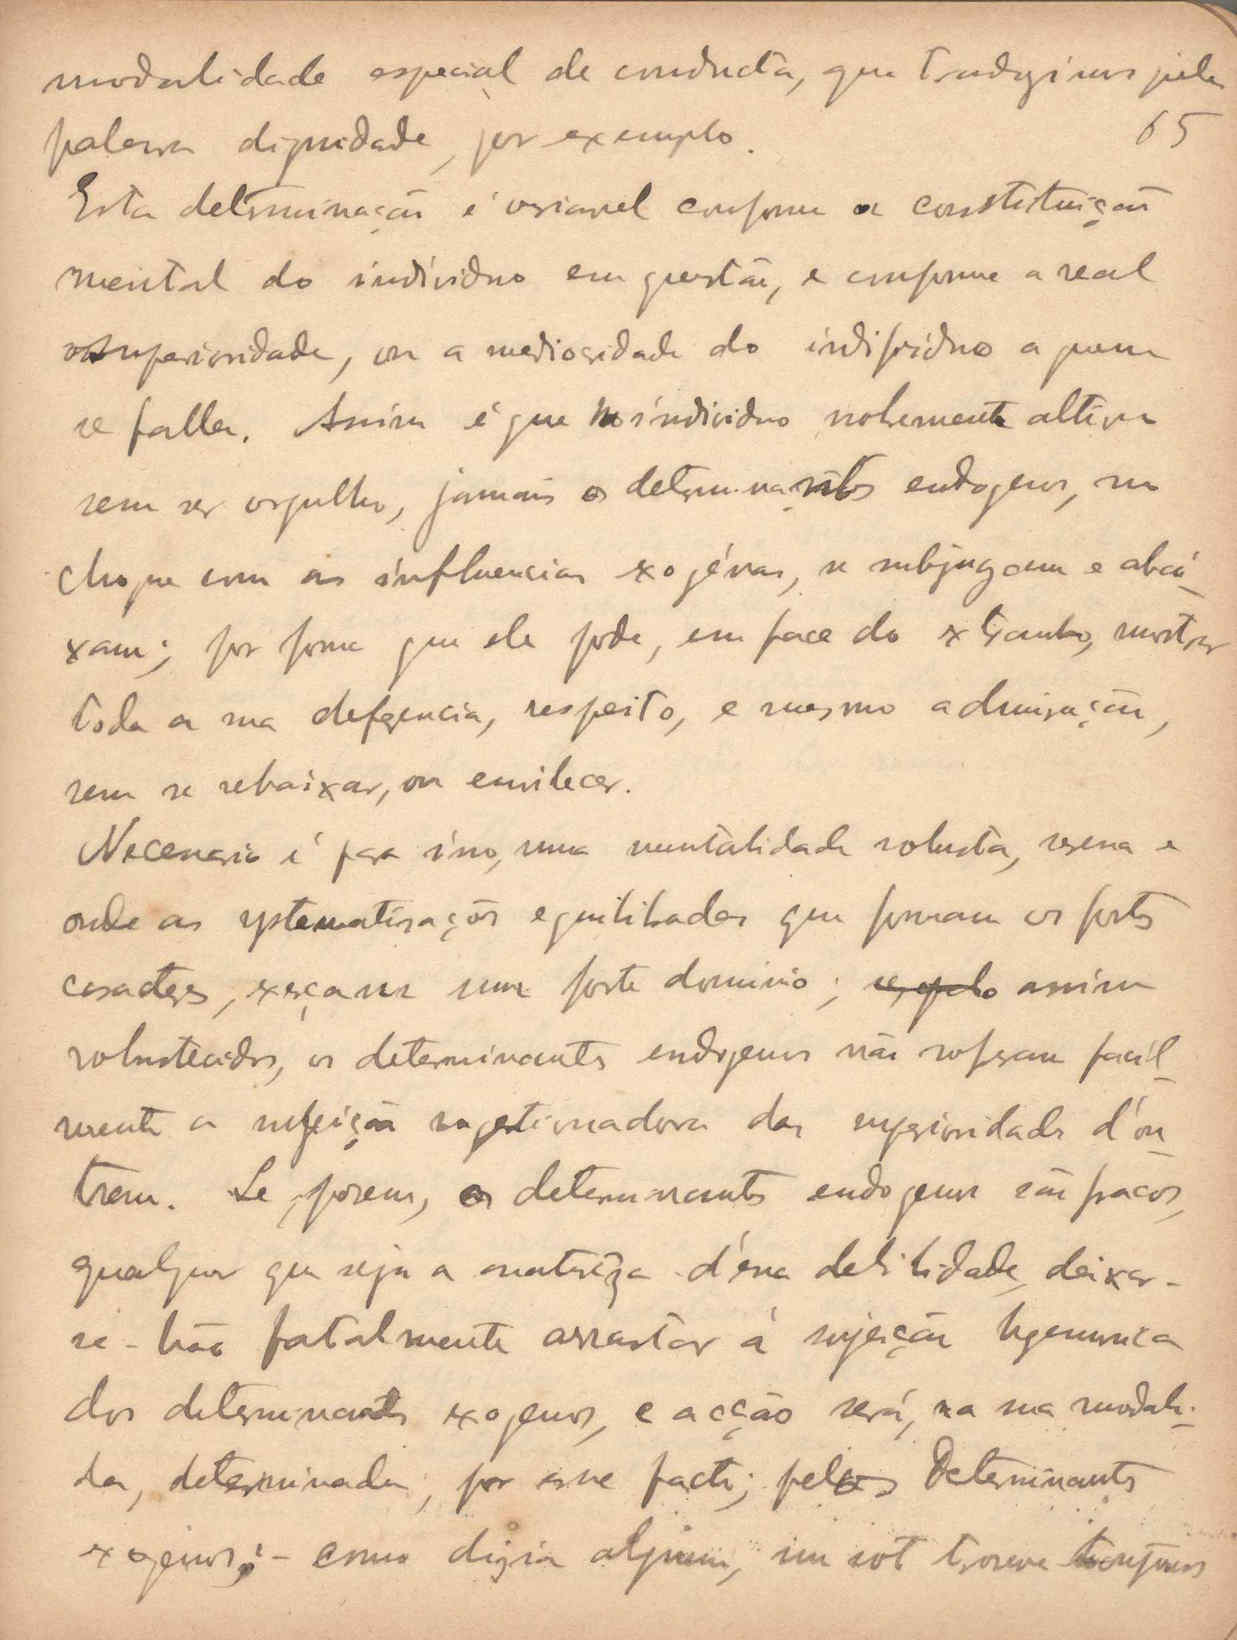 modalidade especial de conducta, que traduzimos pela
palavra dignidade, por exemplo.
65
Esta determinação é variavel conforme a constituição
mental do individuo em questão, e conforme a real
superioridade, ou a mediocridade do individuo a quem
se falla. Assim é que no individuo nobremente altivo
sem ser orgulho, jamais os determinantes endogenos, no
choque com as influencias exogénas, se subjugam e abai-
xam; por forma que ele pode, em face do extranho, mostrar
toda a sua deferencia, respeito, e mesmo admiração,
sem se rebaixar, ou envilecer.
Necessario é para isso, uma mentalidade robusta, serena e
onde as systematisações equilibradas que formam os fortes
caracteres, exerçam um forte dominio; assim
robustecidos, os determinantes endogenos não sofrem facil-
mente a sujeição sugestionadora da superioridade d'ou-
trem. Se, porem, os determinantes endogenos são fracos,
qualquer que seja a natureza d'essa debilidade, deixar-
se-hão fatalmente arrastar á sujeição hegemonica
dos determinantes exogenos, e a acção será, na sua modali-
da, determinada, por esse facto, pelos determinantes
exogenos; - como dizia alguem, un sot trouve toujours